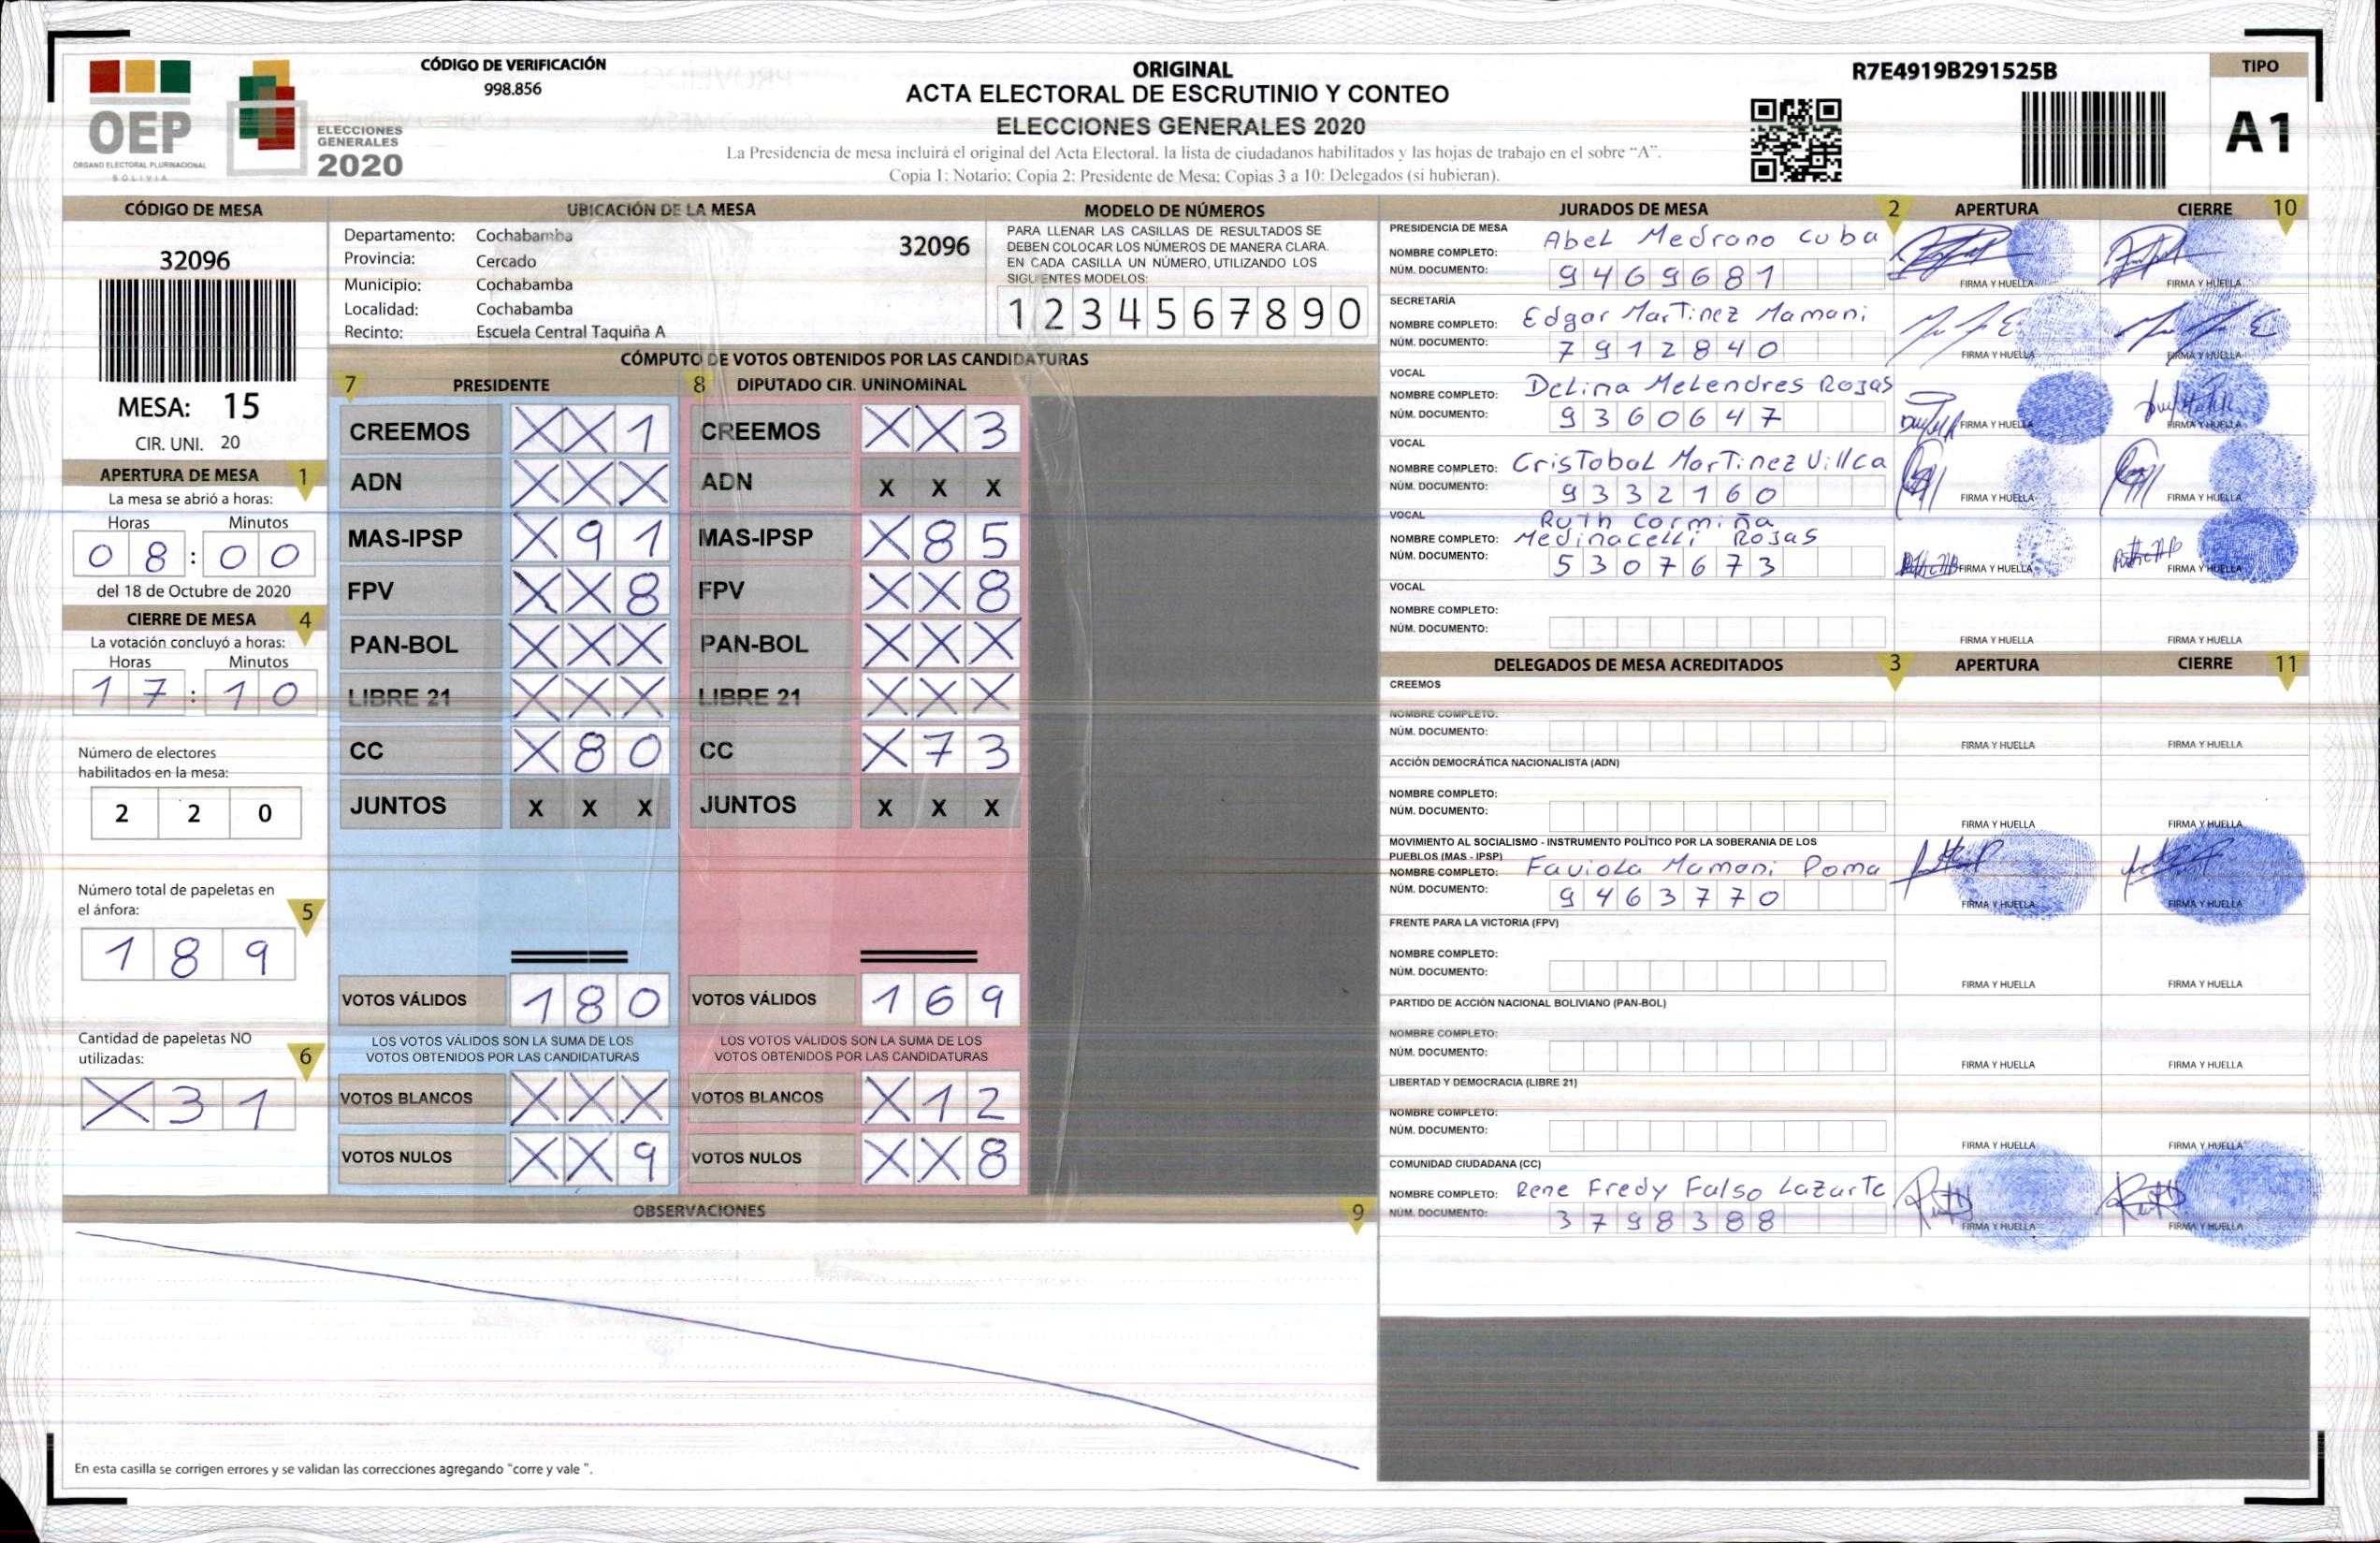 OEP
ÓRGANO ELECTORAL PLURINACIONAL
BOLIVIA
ELECCIONES
GENERALES
2020
CÓDIGO DE VERIFICACIÓN
998.856
ORIGINAL
ACTA ELECTORAL DE ESCRUTINIO Y CONTEO
ELECCIONES GENERALES 2020
La Presidencia de mesa incluirá el original del Acta Electoral, la lista de ciudadanos habilitados y las hojas de trabajo en el sobre “A”.
Copia 1: Notario; Copia 2: Presidente de Mesa; Copias 3 a 10: Delegados (si hubieran).
R7E4919B291525B
TIPO
A1
CÓDIGO DE MESA
32096
MESA: 15
CIR. UNI. 20
APERTURA DE MESA 1
La mesa se abrió a horas:
Horas Minutos
08:00
del 18 de Octubre de 2020
CIERRE DE MESA 4
La votación concluyó a horas:
Horas Minutos
17:10
Número de electores
habilitados en la mesa:
220
Número total de papeletas en
el ánfora: 5
189
Cantidad de papeletas NO
utilizadas: 6
X31
UBICACIÓN DE LA MESA
Departamento: Cochabamba
Provincia: Cercado
Municipio: Cochabamba
Localidad: Cochabamba
Recinto: Escuela Central Taquiña A
32096
MODELO DE NÚMEROS
PARA LLENAR LAS CASILLAS DE RESULTADOS SE
DEBEN COLOCAR LOS NÚMEROS DE MANERA CLARA.
EN CADA CASILLA UN NÚMERO, UTILIZANDO LOS
SIGUIENTES MODELOS:
1234567890
CÓMPUTO DE VOTOS OBTENIDOS POR LAS CANDIDATURAS
7 PRESIDENTE 8 DIPUTADO CIR. UNINOMINAL
CREEMOS XX1 CREEMOS XX3
ADN XXX ADN X X X
MAS-IPSP X91 MAS-IPSP X85
FPV XX8 FPV XX8
PAN-BOL XXX PAN-BOL XXX
LIBRE 21 XXX LIBRE 21 XXX
CC X80 CC X73
JUNTOS X X X JUNTOS X X X
VOTOS VÁLIDOS 180 VOTOS VÁLIDOS 169
LOS VOTOS VÁLIDOS SON LA SUMA DE LOS LOS VOTOS VÁLIDOS SON LA SUMA DE LOS
VOTOS OBTENIDOS POR LAS CANDIDATURAS VOTOS OBTENIDOS POR LAS CANDIDATURAS
VOTOS BLANCOS XXX VOTOS BLANCOS X12
VOTOS NULOS XX9 VOTOS NULOS XX8
OBSERVACIONES 9
En esta casilla se corrigen errores y se validan las correcciones agregando “corre y vale ”.
JURADOS DE MESA 2 APERTURA CIERRE 10
PRESIDENCIA DE MESA
NOMBRE COMPLETO: Abel Medrano Cuba
NÚM. DOCUMENTO: 9469681
FIRMA Y HUELLA FIRMA Y HUELLA
SECRETARÍA
NOMBRE COMPLETO: Edgar Martinez Mamani
NÚM. DOCUMENTO: 7912840
FIRMA Y HUELLA FIRMA Y HUELLA
VOCAL
NOMBRE COMPLETO: Delina Melendres Rojas
NÚM. DOCUMENTO: 9360647
FIRMA Y HUELLA FIRMA Y HUELLA
VOCAL
NOMBRE COMPLETO: Cristobal Martinez Villca
NÚM. DOCUMENTO: 9332160
FIRMA Y HUELLA FIRMA Y HUELLA
VOCAL
Ruth Cormiña
NOMBRE COMPLETO: Medinacelli Rojas
NÚM. DOCUMENTO: 5307673
FIRMA Y HUELLA FIRMA Y HUELLA
VOCAL
NOMBRE COMPLETO:
NÚM. DOCUMENTO:
FIRMA Y HUELLA FIRMA Y HUELLA
DELEGADOS DE MESA ACREDITADOS 3 APERTURA CIERRE 11
CREEMOS
NOMBRE COMPLETO:
NÚM. DOCUMENTO:
FIRMA Y HUELLA FIRMA Y HUELLA
ACCIÓN DEMOCRÁTICA NACIONALISTA (ADN)
NOMBRE COMPLETO:
NÚM. DOCUMENTO:
FIRMA Y HUELLA FIRMA Y HUELLA
MOVIMIENTO AL SOCIALISMO - INSTRUMENTO POLÍTICO POR LA SOBERANIA DE LOS
PUEBLOS (MAS - IPSP)
NOMBRE COMPLETO: Faviola Mamani Poma
NÚM. DOCUMENTO: 9463770
FIRMA Y HUELLA FIRMA Y HUELLA
FRENTE PARA LA VICTORIA (FPV)
NOMBRE COMPLETO:
NÚM. DOCUMENTO:
FIRMA Y HUELLA FIRMA Y HUELLA
PARTIDO DE ACCIÓN NACIONAL BOLIVIANO (PAN-BOL)
NOMBRE COMPLETO:
NÚM. DOCUMENTO:
FIRMA Y HUELLA FIRMA Y HUELLA
LIBERTAD Y DEMOCRACIA (LIBRE 21)
NOMBRE COMPLETO:
NÚM. DOCUMENTO:
FIRMA Y HUELLA FIRMA Y HUELLA
COMUNIDAD CIUDADANA (CC)
NOMBRE COMPLETO: Rene Fredy Falso Lazarte
NÚM. DOCUMENTO: 3798388
FIRMA Y HUELLA FIRMA Y HUELLA